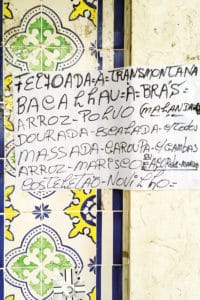 FEIJOADA=A=TRANSMONTANA
BACALHAU=À=BRÁS=
ARROZ-POLVO (MALANDRO
DOURADA-ESCALADA=C/todos
MASSADA-GAROUPA-C/GAMBAS
ARROZ-MARISCO=
COSTELETÃO=NOVILHO=